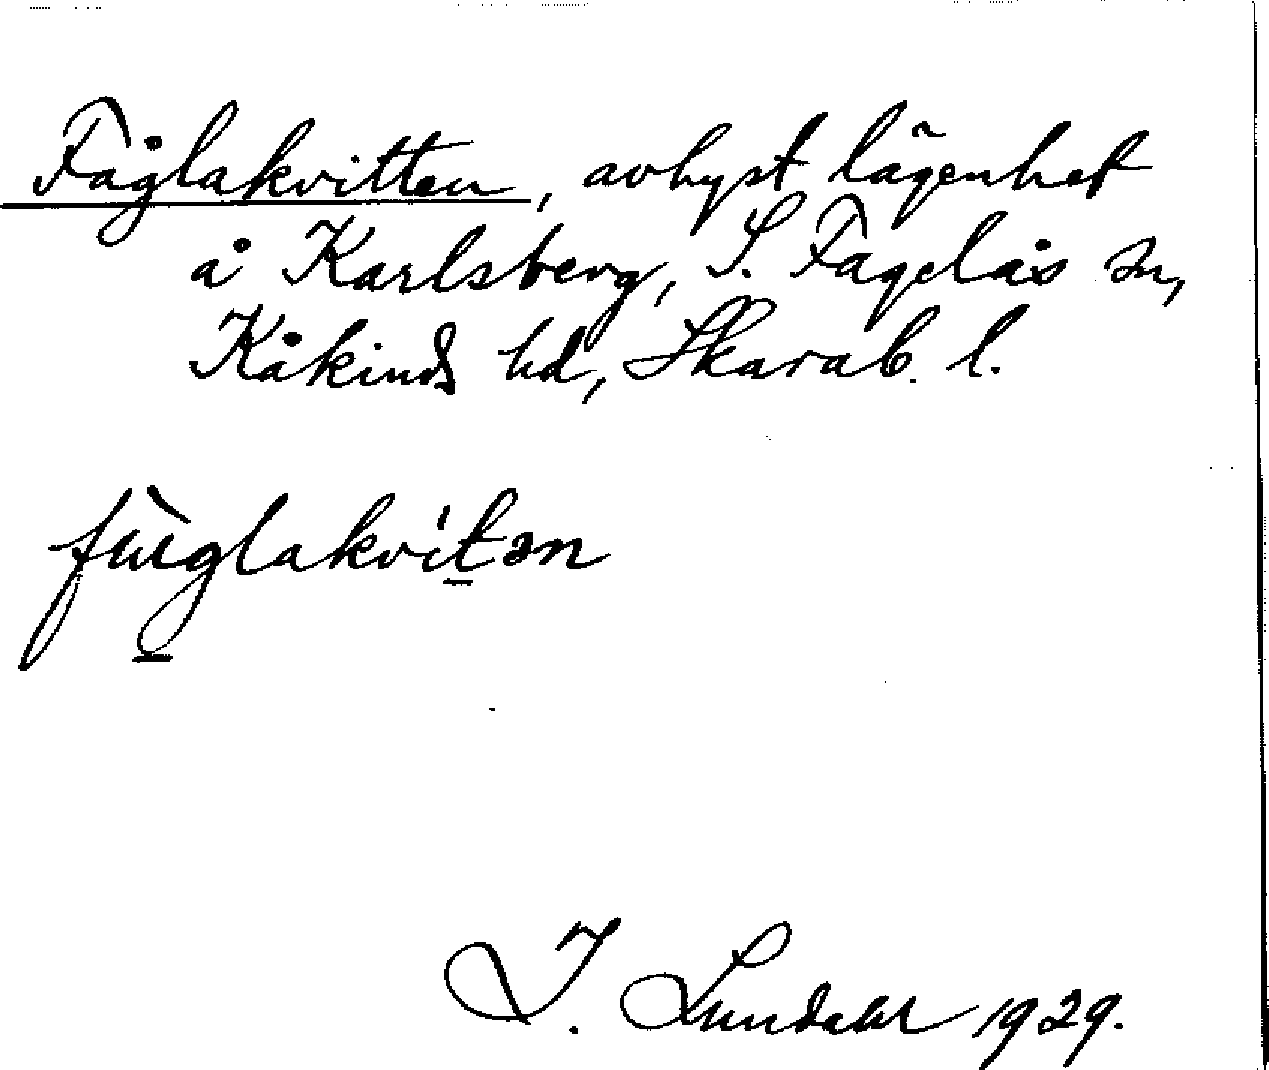 Fåglakvitten, avhyst lägenhet
å Karlsberg, S. Fågelås sn,
Kåkinds hd, Skarab. l.
fùglakvítən
I. Lundahl 1929.